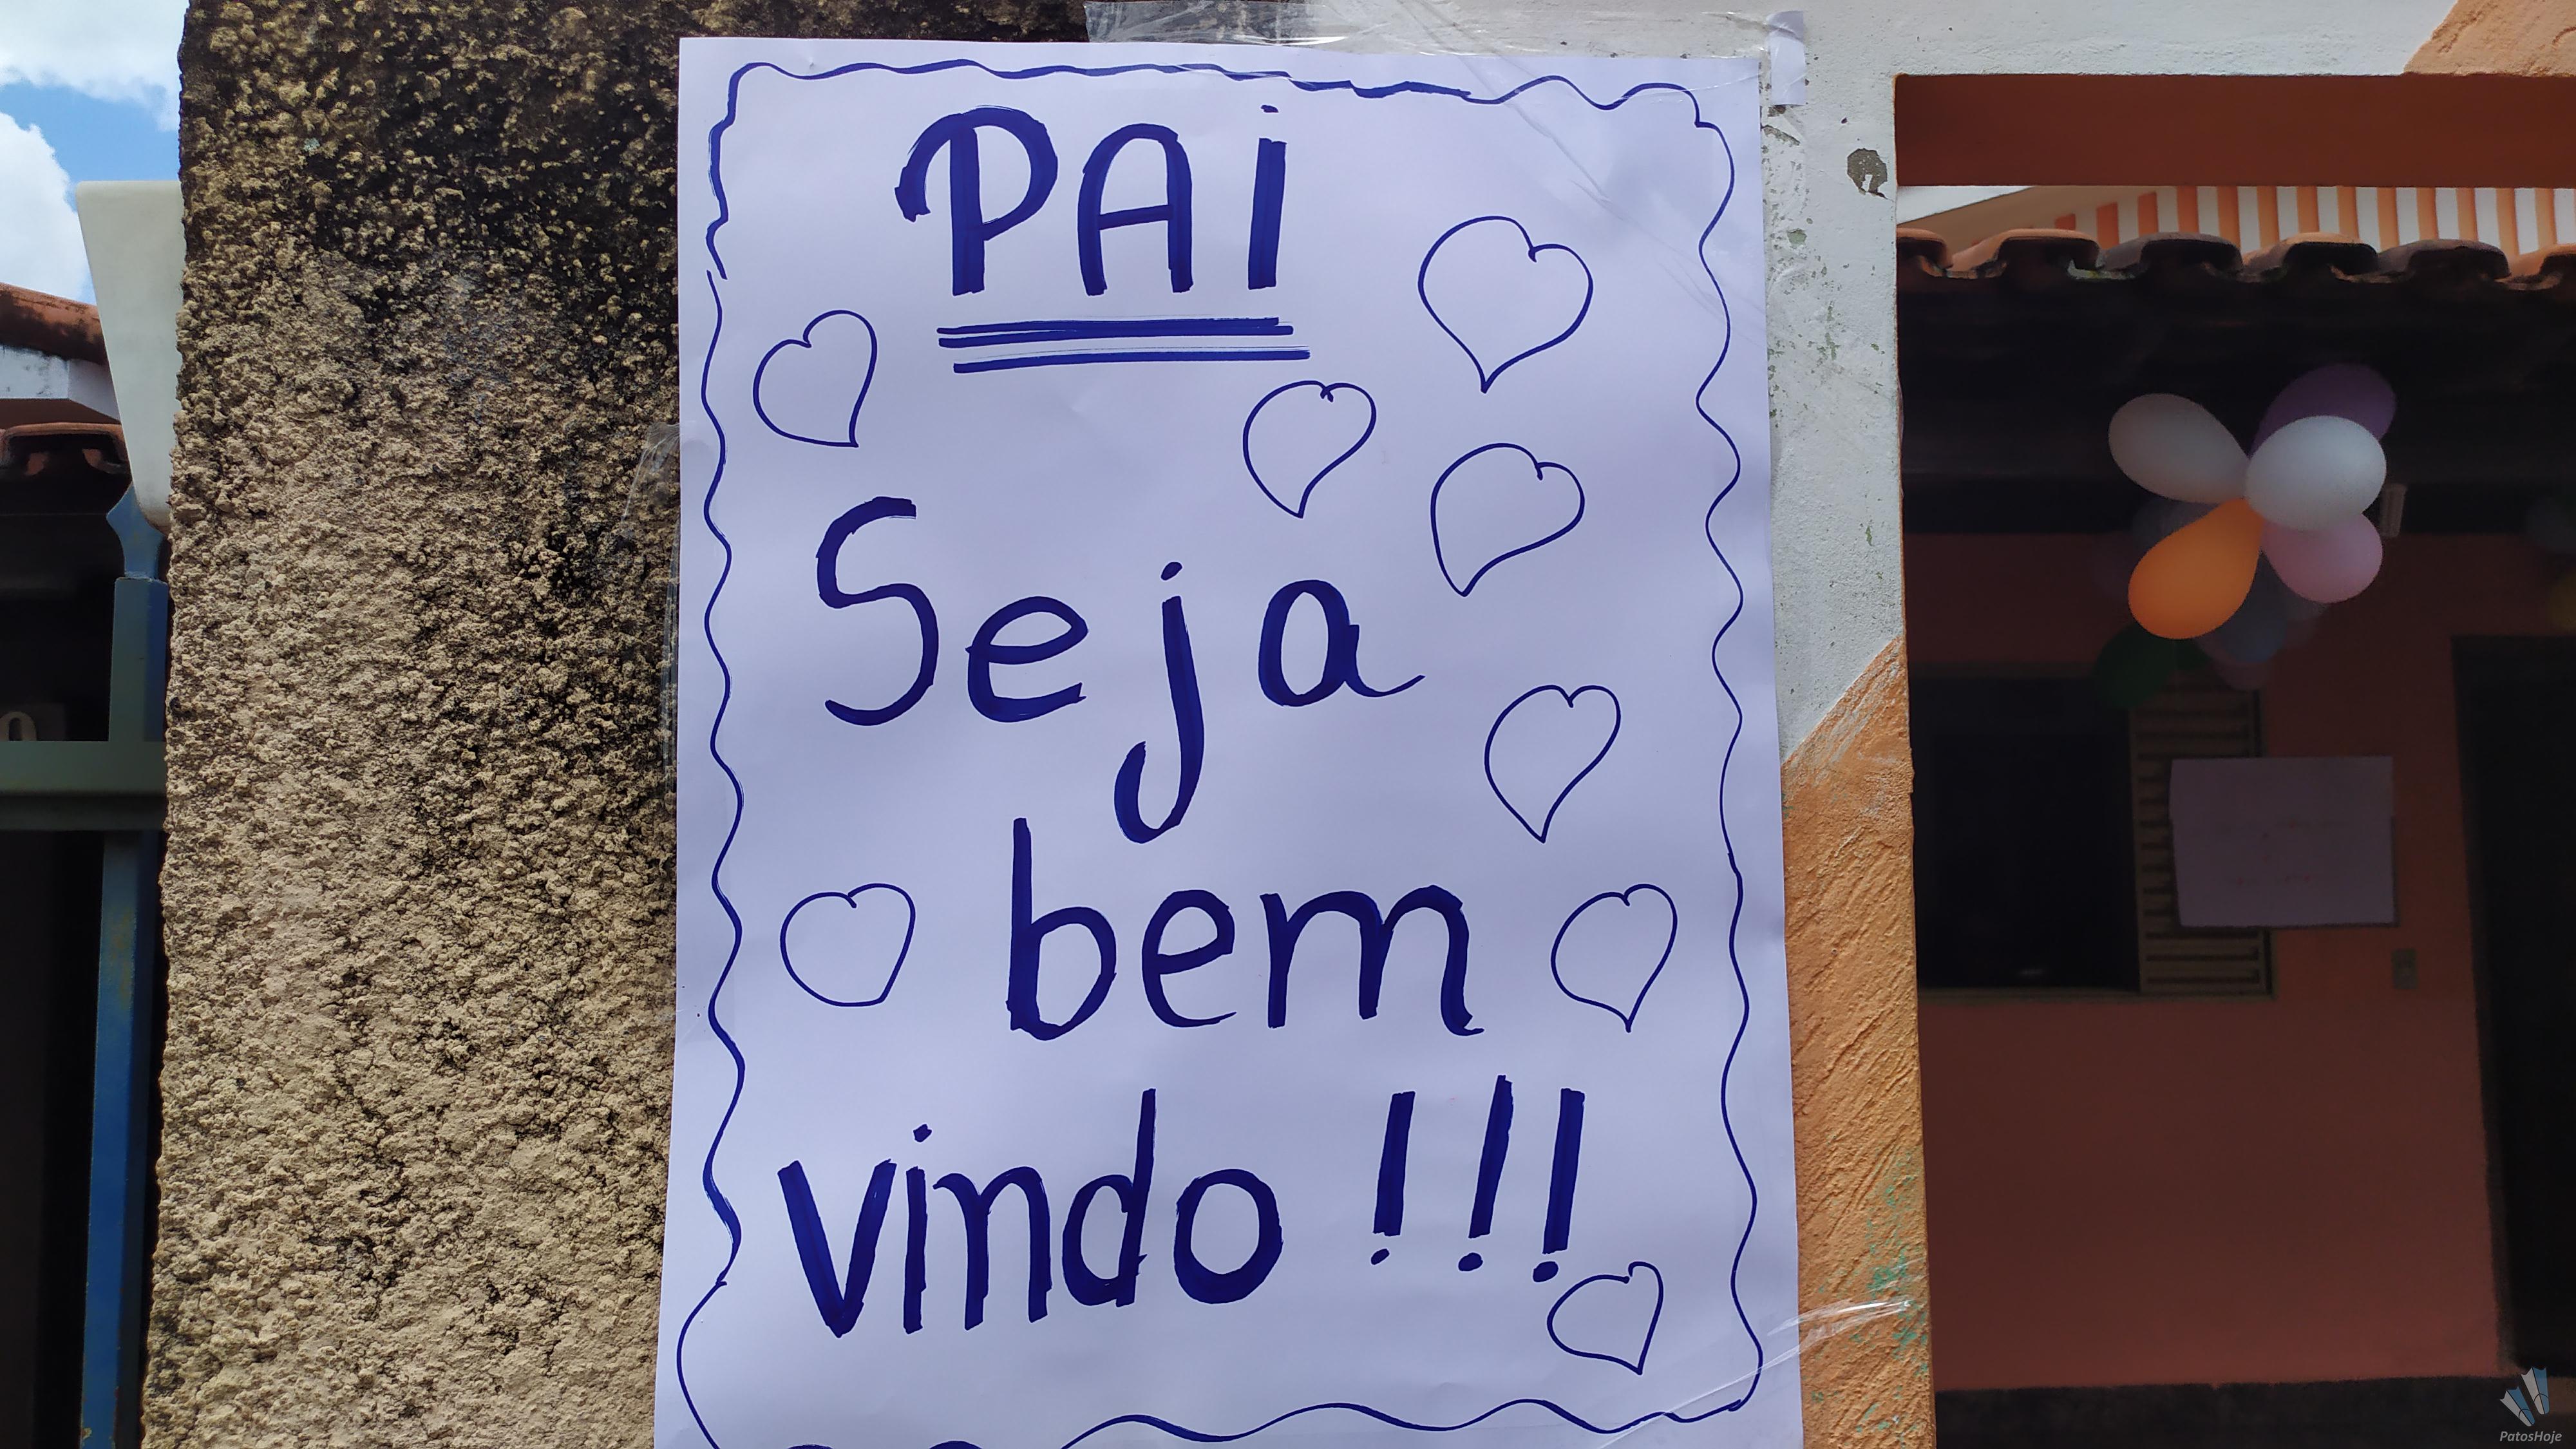 PAi
Seja
bem
vindo !!!
PatosHoje